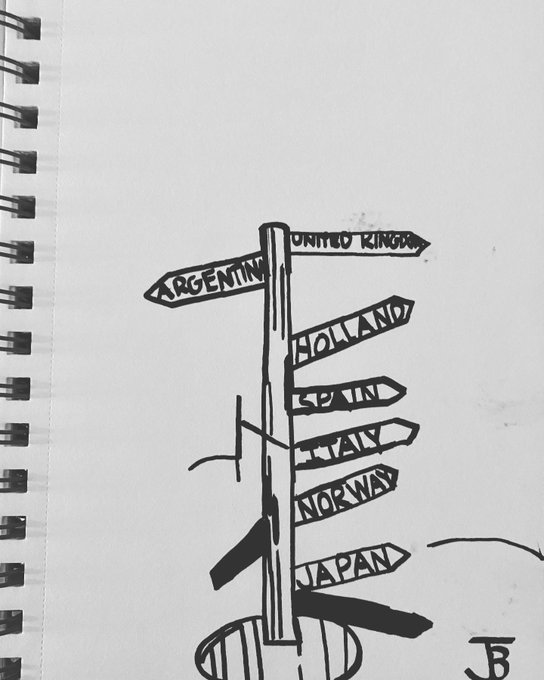 UNITED KINGDOM
ARGENTINA
HOLLAND
SPAIN
ITALY
NORWAY
JAPAN
JB